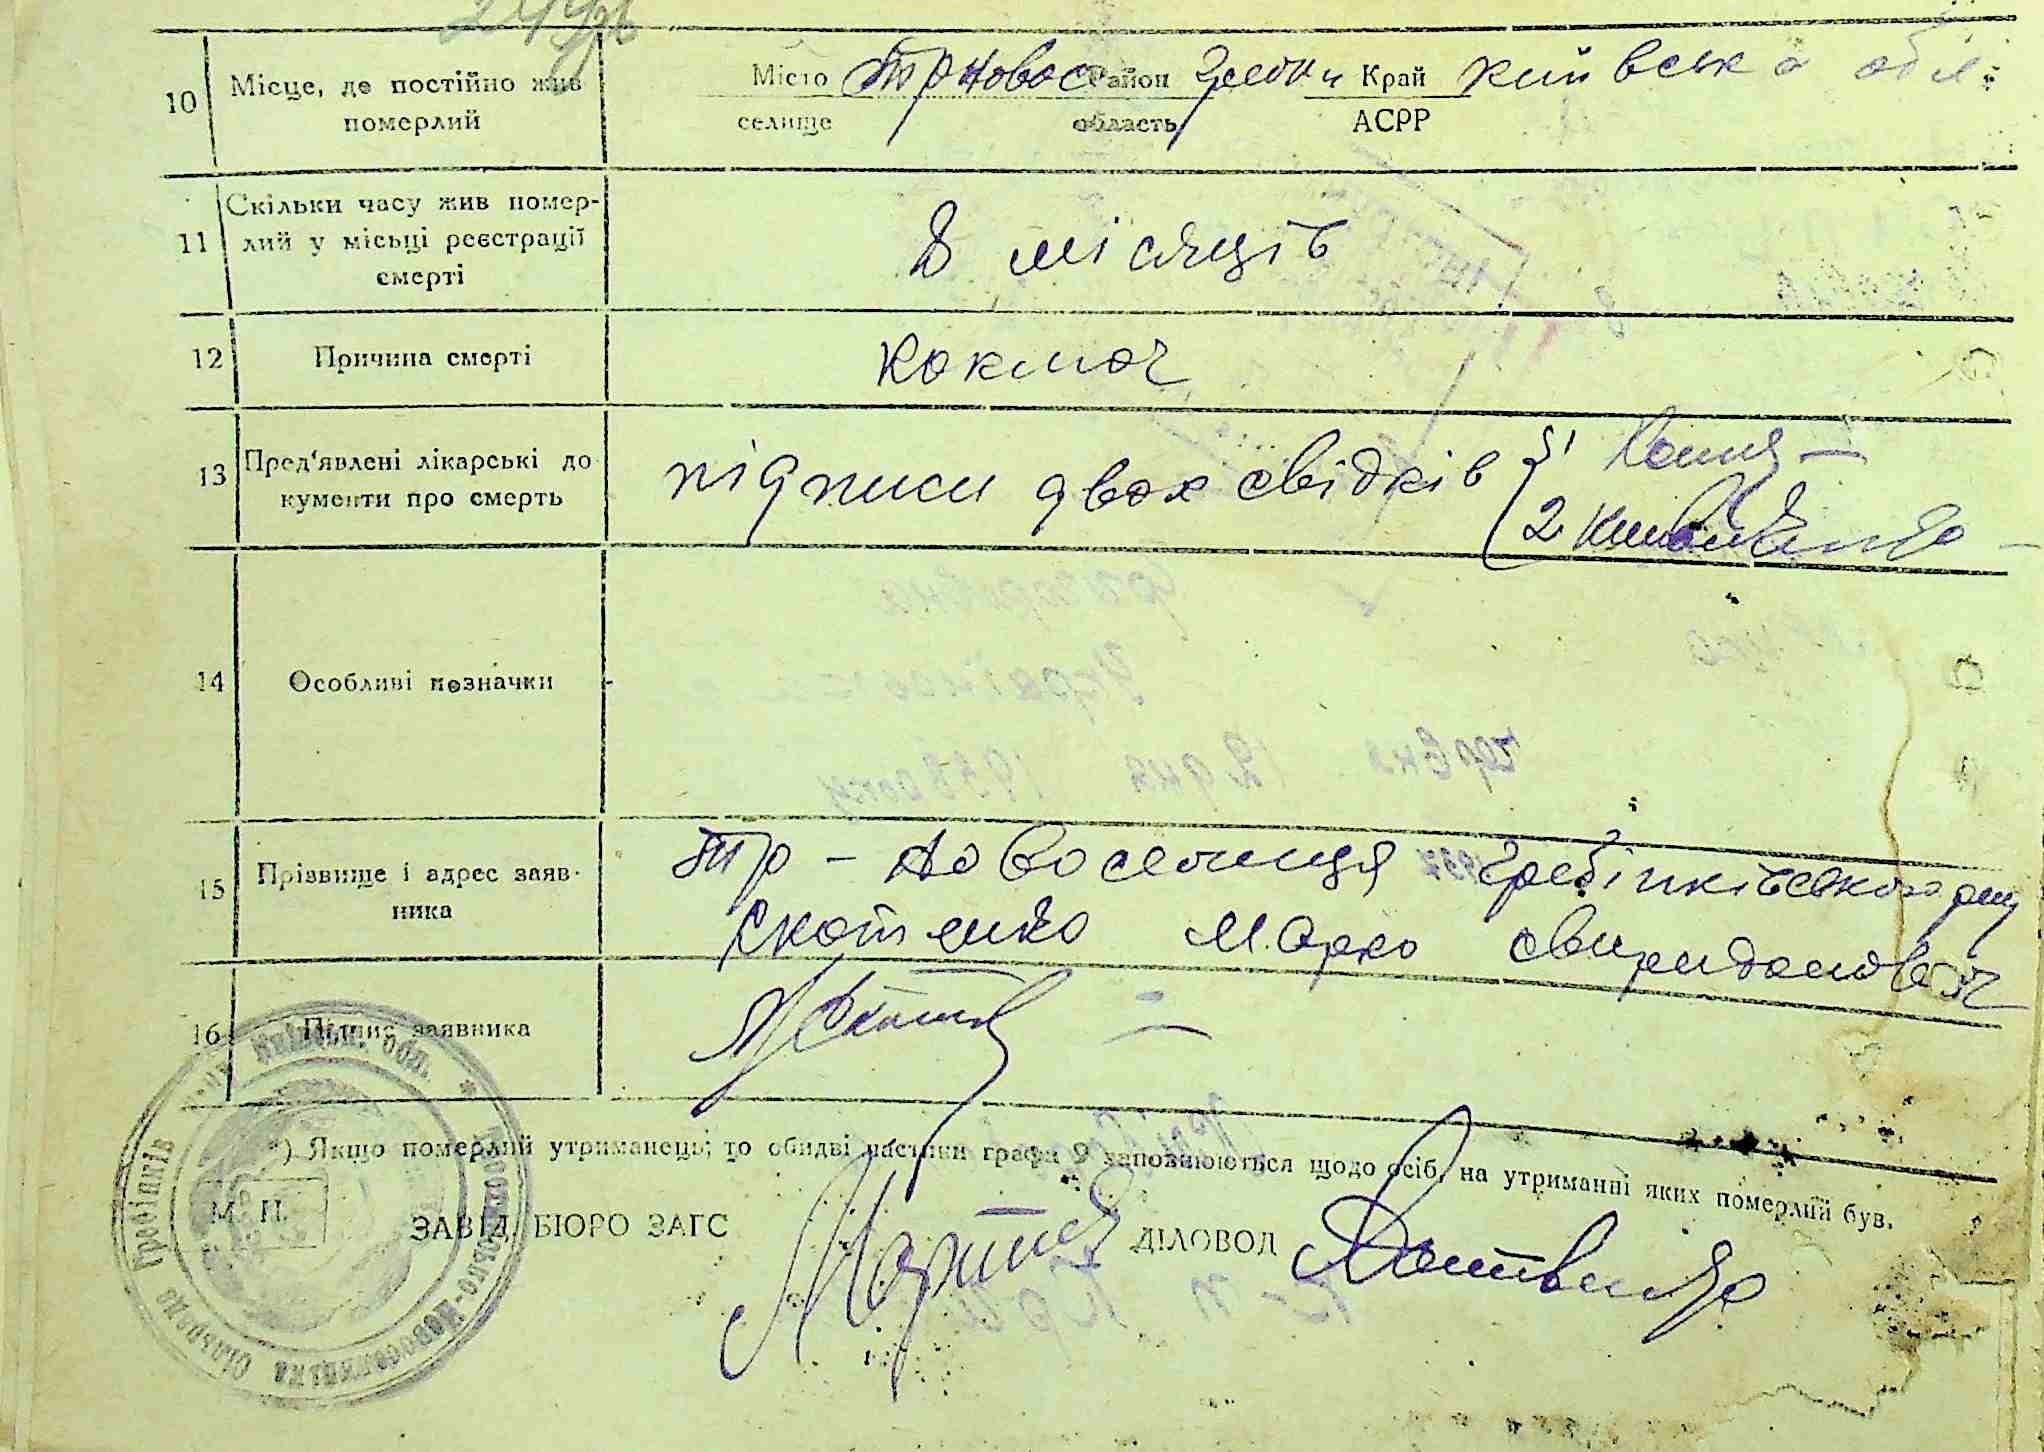 10 Місце, де постійно жив померлий
Місто Тр Новос Район Гребін Край Київська обл.
селище область АСРР
11 Скільки часу жив помер-
лий у місьці реєстрації
смерті
8 місяців
12 Причина смерті
Коключ
13 Пред'явлені лікарські до
кументи про смерть
підписи двох свідків 1
2
14 Особливі позначки
15 Прізвище і адрес заяв-
ника
Тр - Новоселиця Гребінківського рну
Скотенко Марко Свиридонович
16 Підпис заявника
*) Якщо померлий утриманець; то обидві частини графи 9 заповнюються щодо осіб, на утриманні яких померлий був.
М. П.
ЗАВІД. БЮРО ЗАГС
ДІЛОВОД